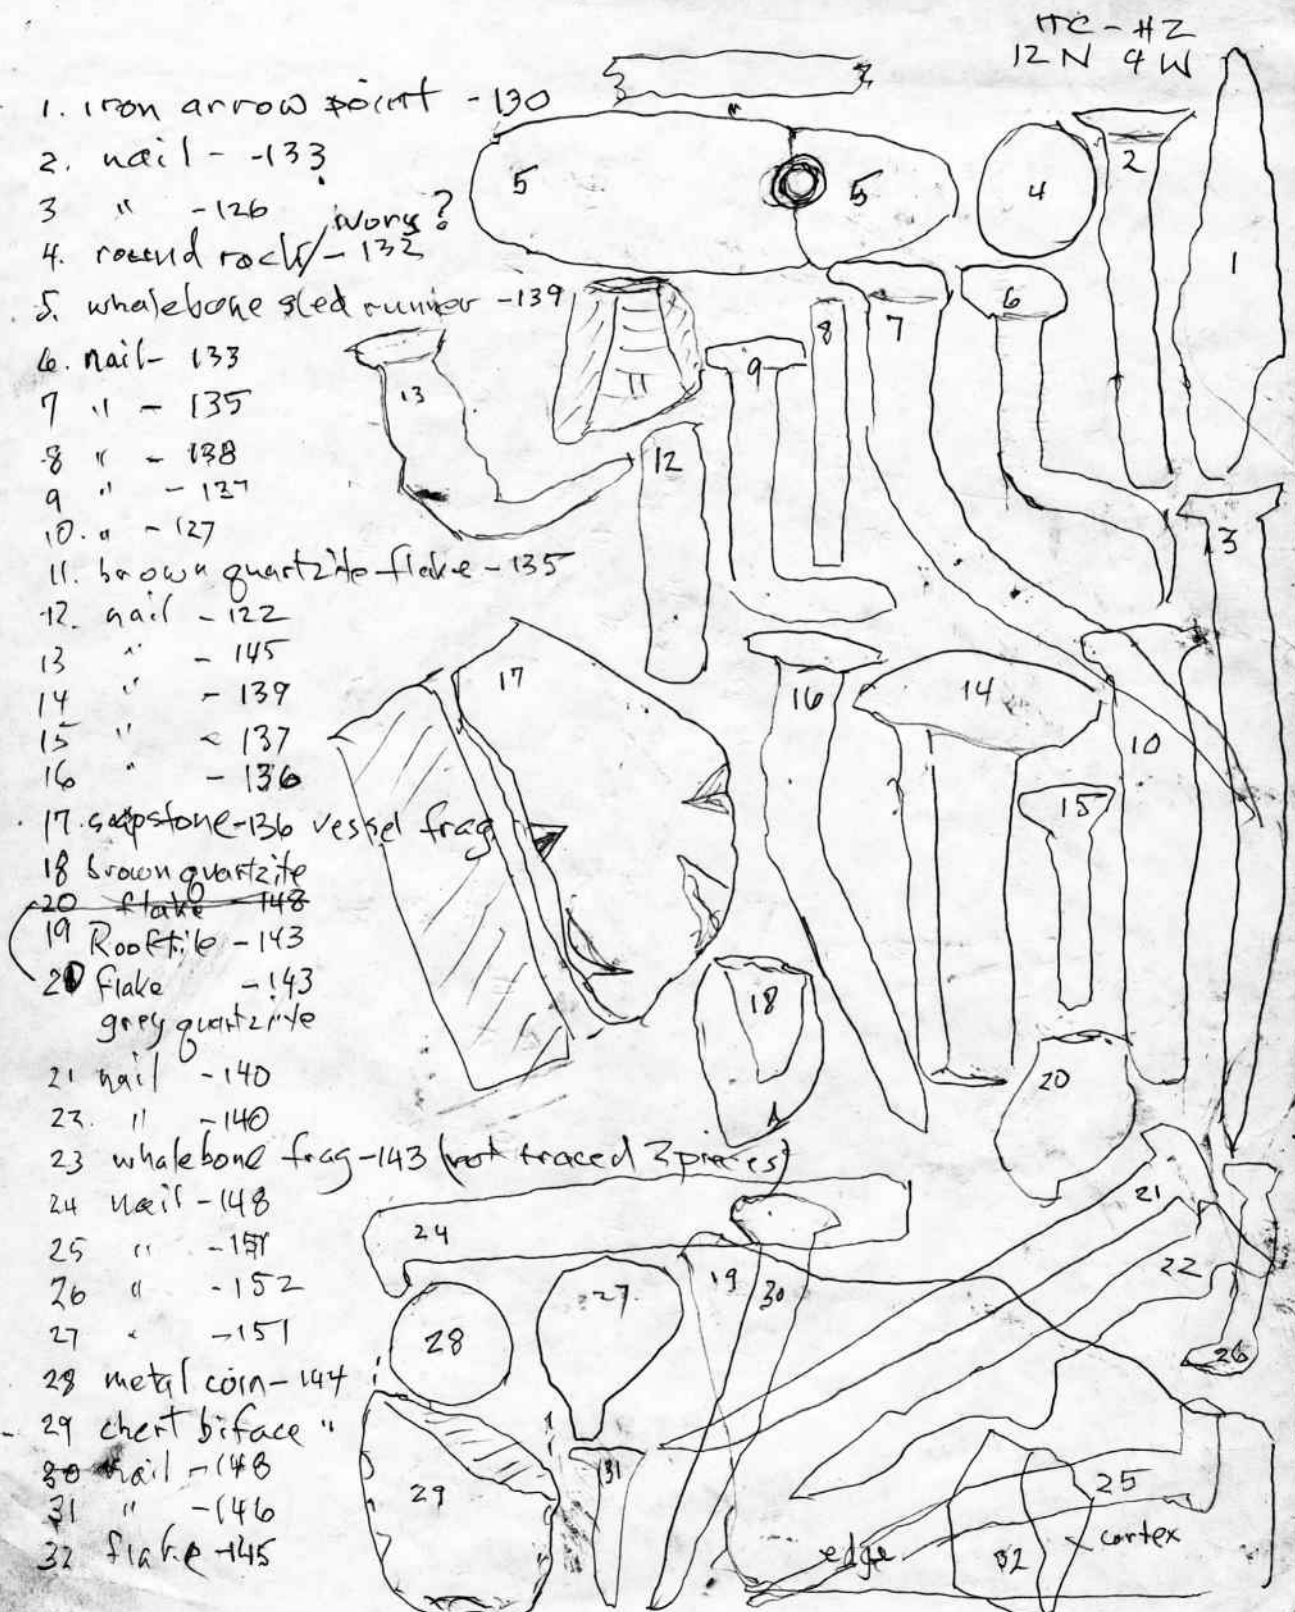 HC-#2
12N 9W
1. iron arrow point - 130
2. nail - -133
3 " -126
ivory?
4. round rock/ - 132
5. whalebone sled runner -139
6. nail - 133
7 " - 135
8 " - 138
9 " - 137
10. " - 127
11. brown quartzite flake - 135
12. nail - 122
13 " - 145
14 " - 139
15 " - 137
16 " - 136
17. soapstone-136 vessel frag
18 brown quartzite
20 flake 148
19 Rooftile - 143
20 flake - 143
grey quartzite
21 nail -140
22. " -140
23 whalebone frag-143 (not traced 2 pieces)
24 nail -148
25 " -151
26 " -152
27 " -151
28 metal coin-144
29 chert biface "
30 nail -148
31 " -146
32 flake -145
5
5
4
2
1
6
7
8
9
11
13
12
3
17
16
14
10
15
18
20
21
24
22
19
30
27
28
26
31
29
25
32
edge
cortex